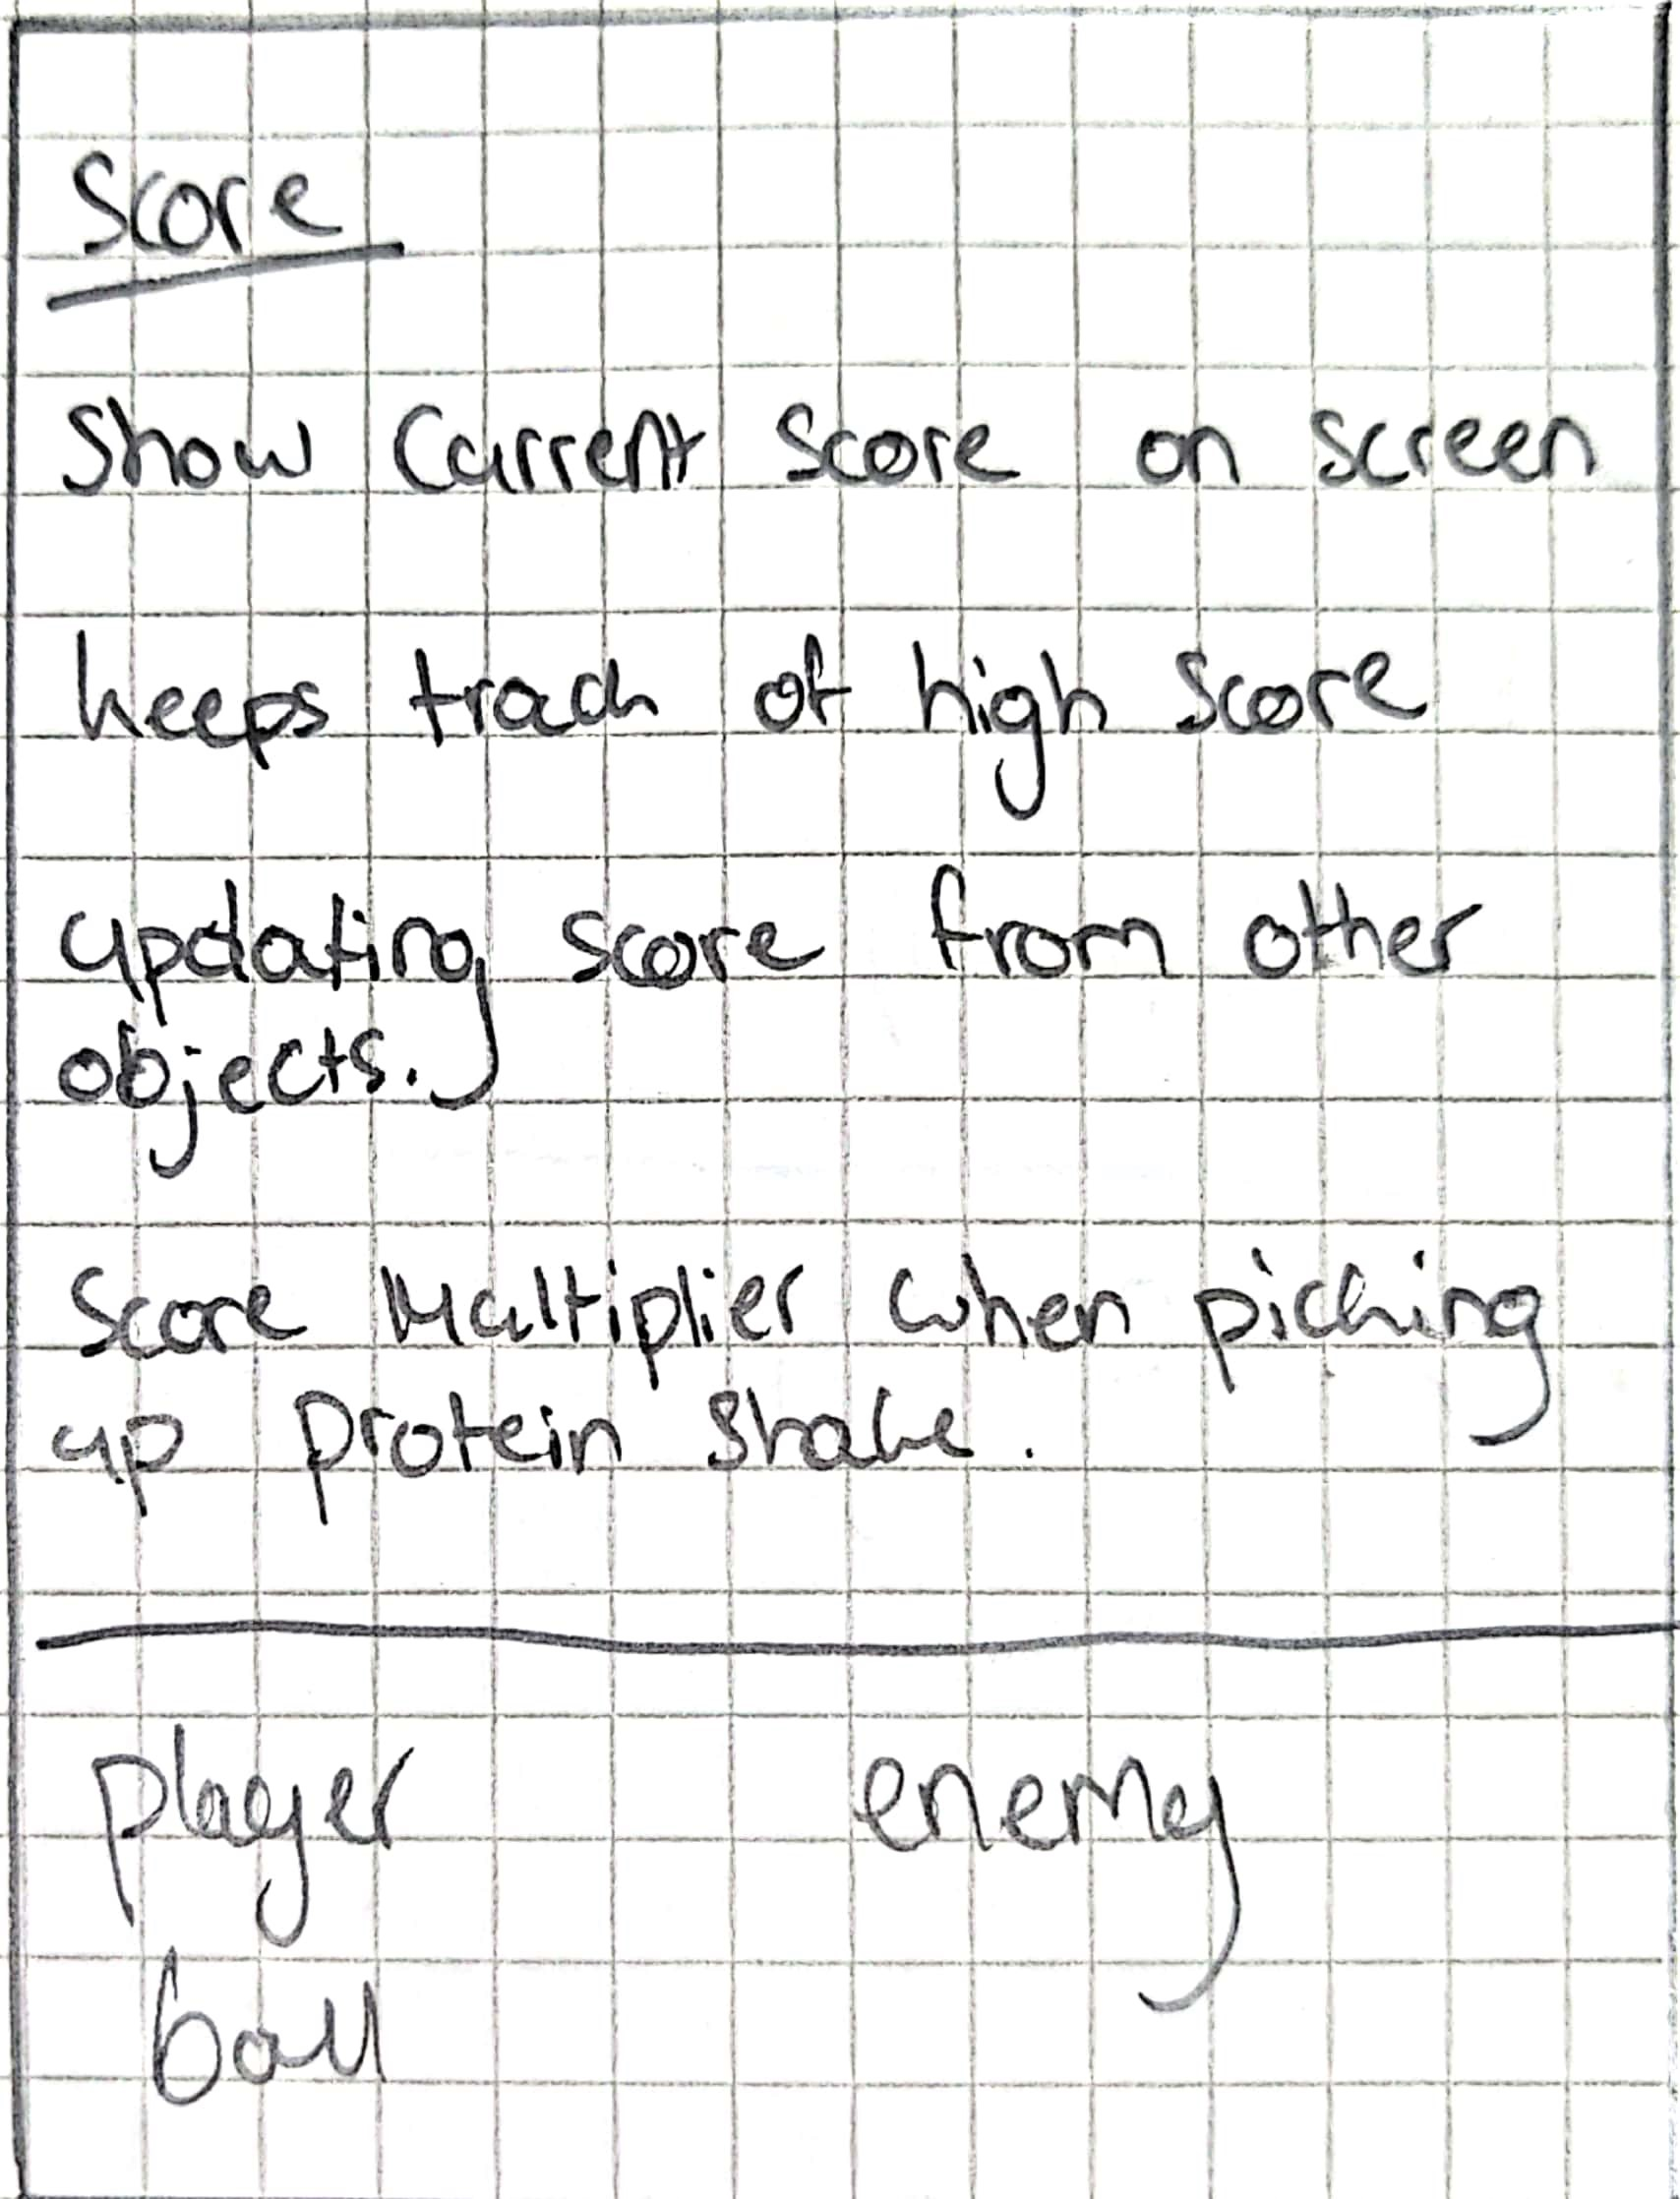 Score
Show Current Score on screen
keeps track of high score
updating score from other
objects.
Score Multiplier when picking
up protein shake.
player enemy
ball